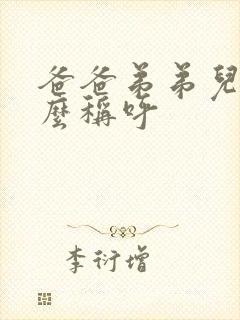 爸爸弟弟兒
麼稱呼
李衍增